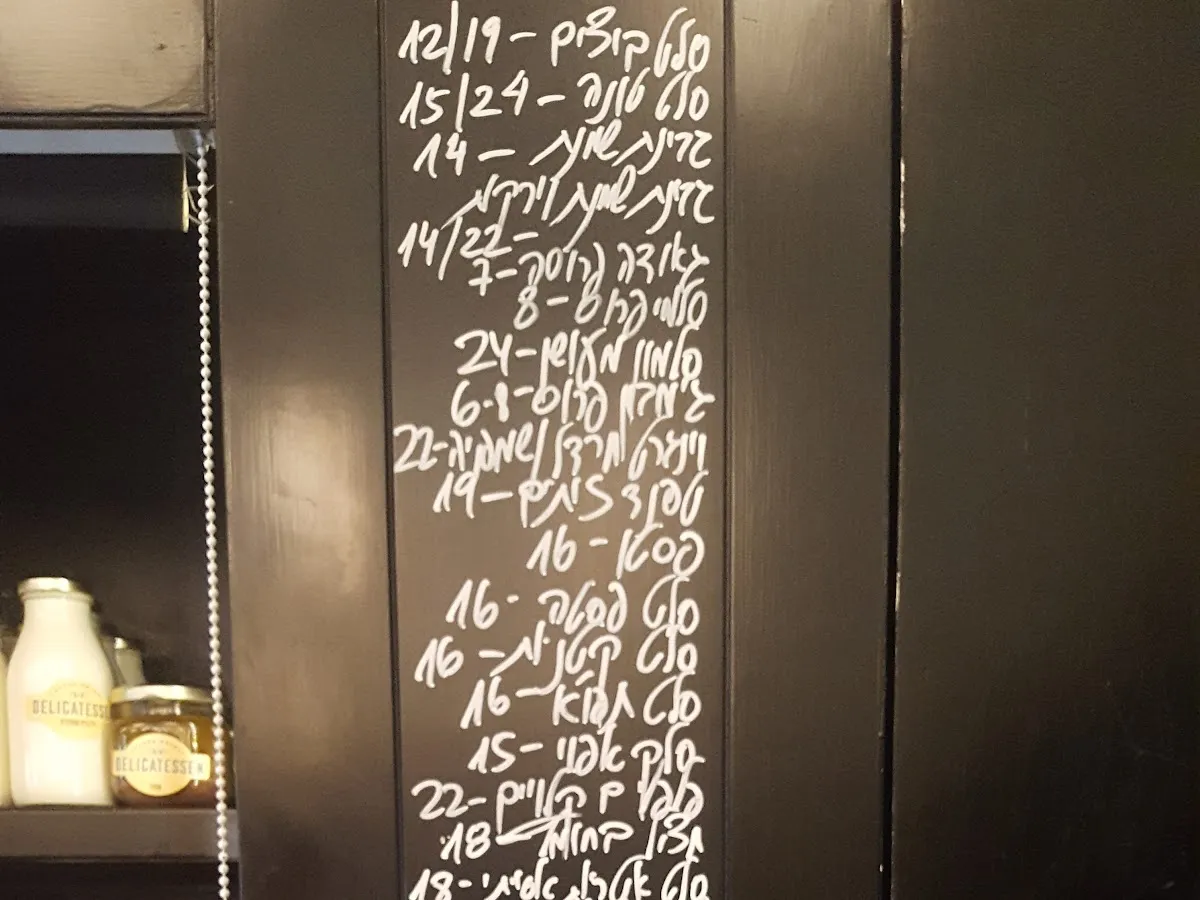 סלט ביצים - 12/19
סלט טונה - 15/24
גבינת שמנת - 14
גבינת שמנת וירקות
14/22 -
גאודה פרוסה - 7
סלמי פרוס - 8
סלמון מעושן - 24
פרוס - 6-8
וינגרט חרדל / 22-
טפנד זיתים - 19
פסטו - 16
סלט פסטה - 16
סלט קטניות - 16
סלט - 16
סלק אפוי - 15
פלפלים קלויים - 22
חציל בחומץ - 18
סלט אטריות אסייתי - 18
DELICATESSEN
DELICATESSEN